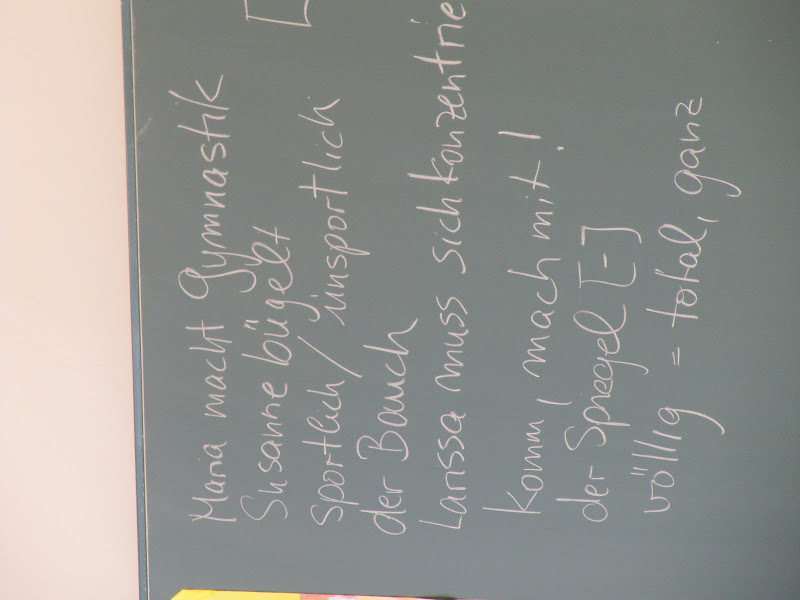 Maria macht Gymnastik
Susanne bügelt [
sportlich / unsportlich
der Bauch
Larissa muss sich konzentrie
Komm, mach mit!
der Spiegel [-]
völlig = total, ganz